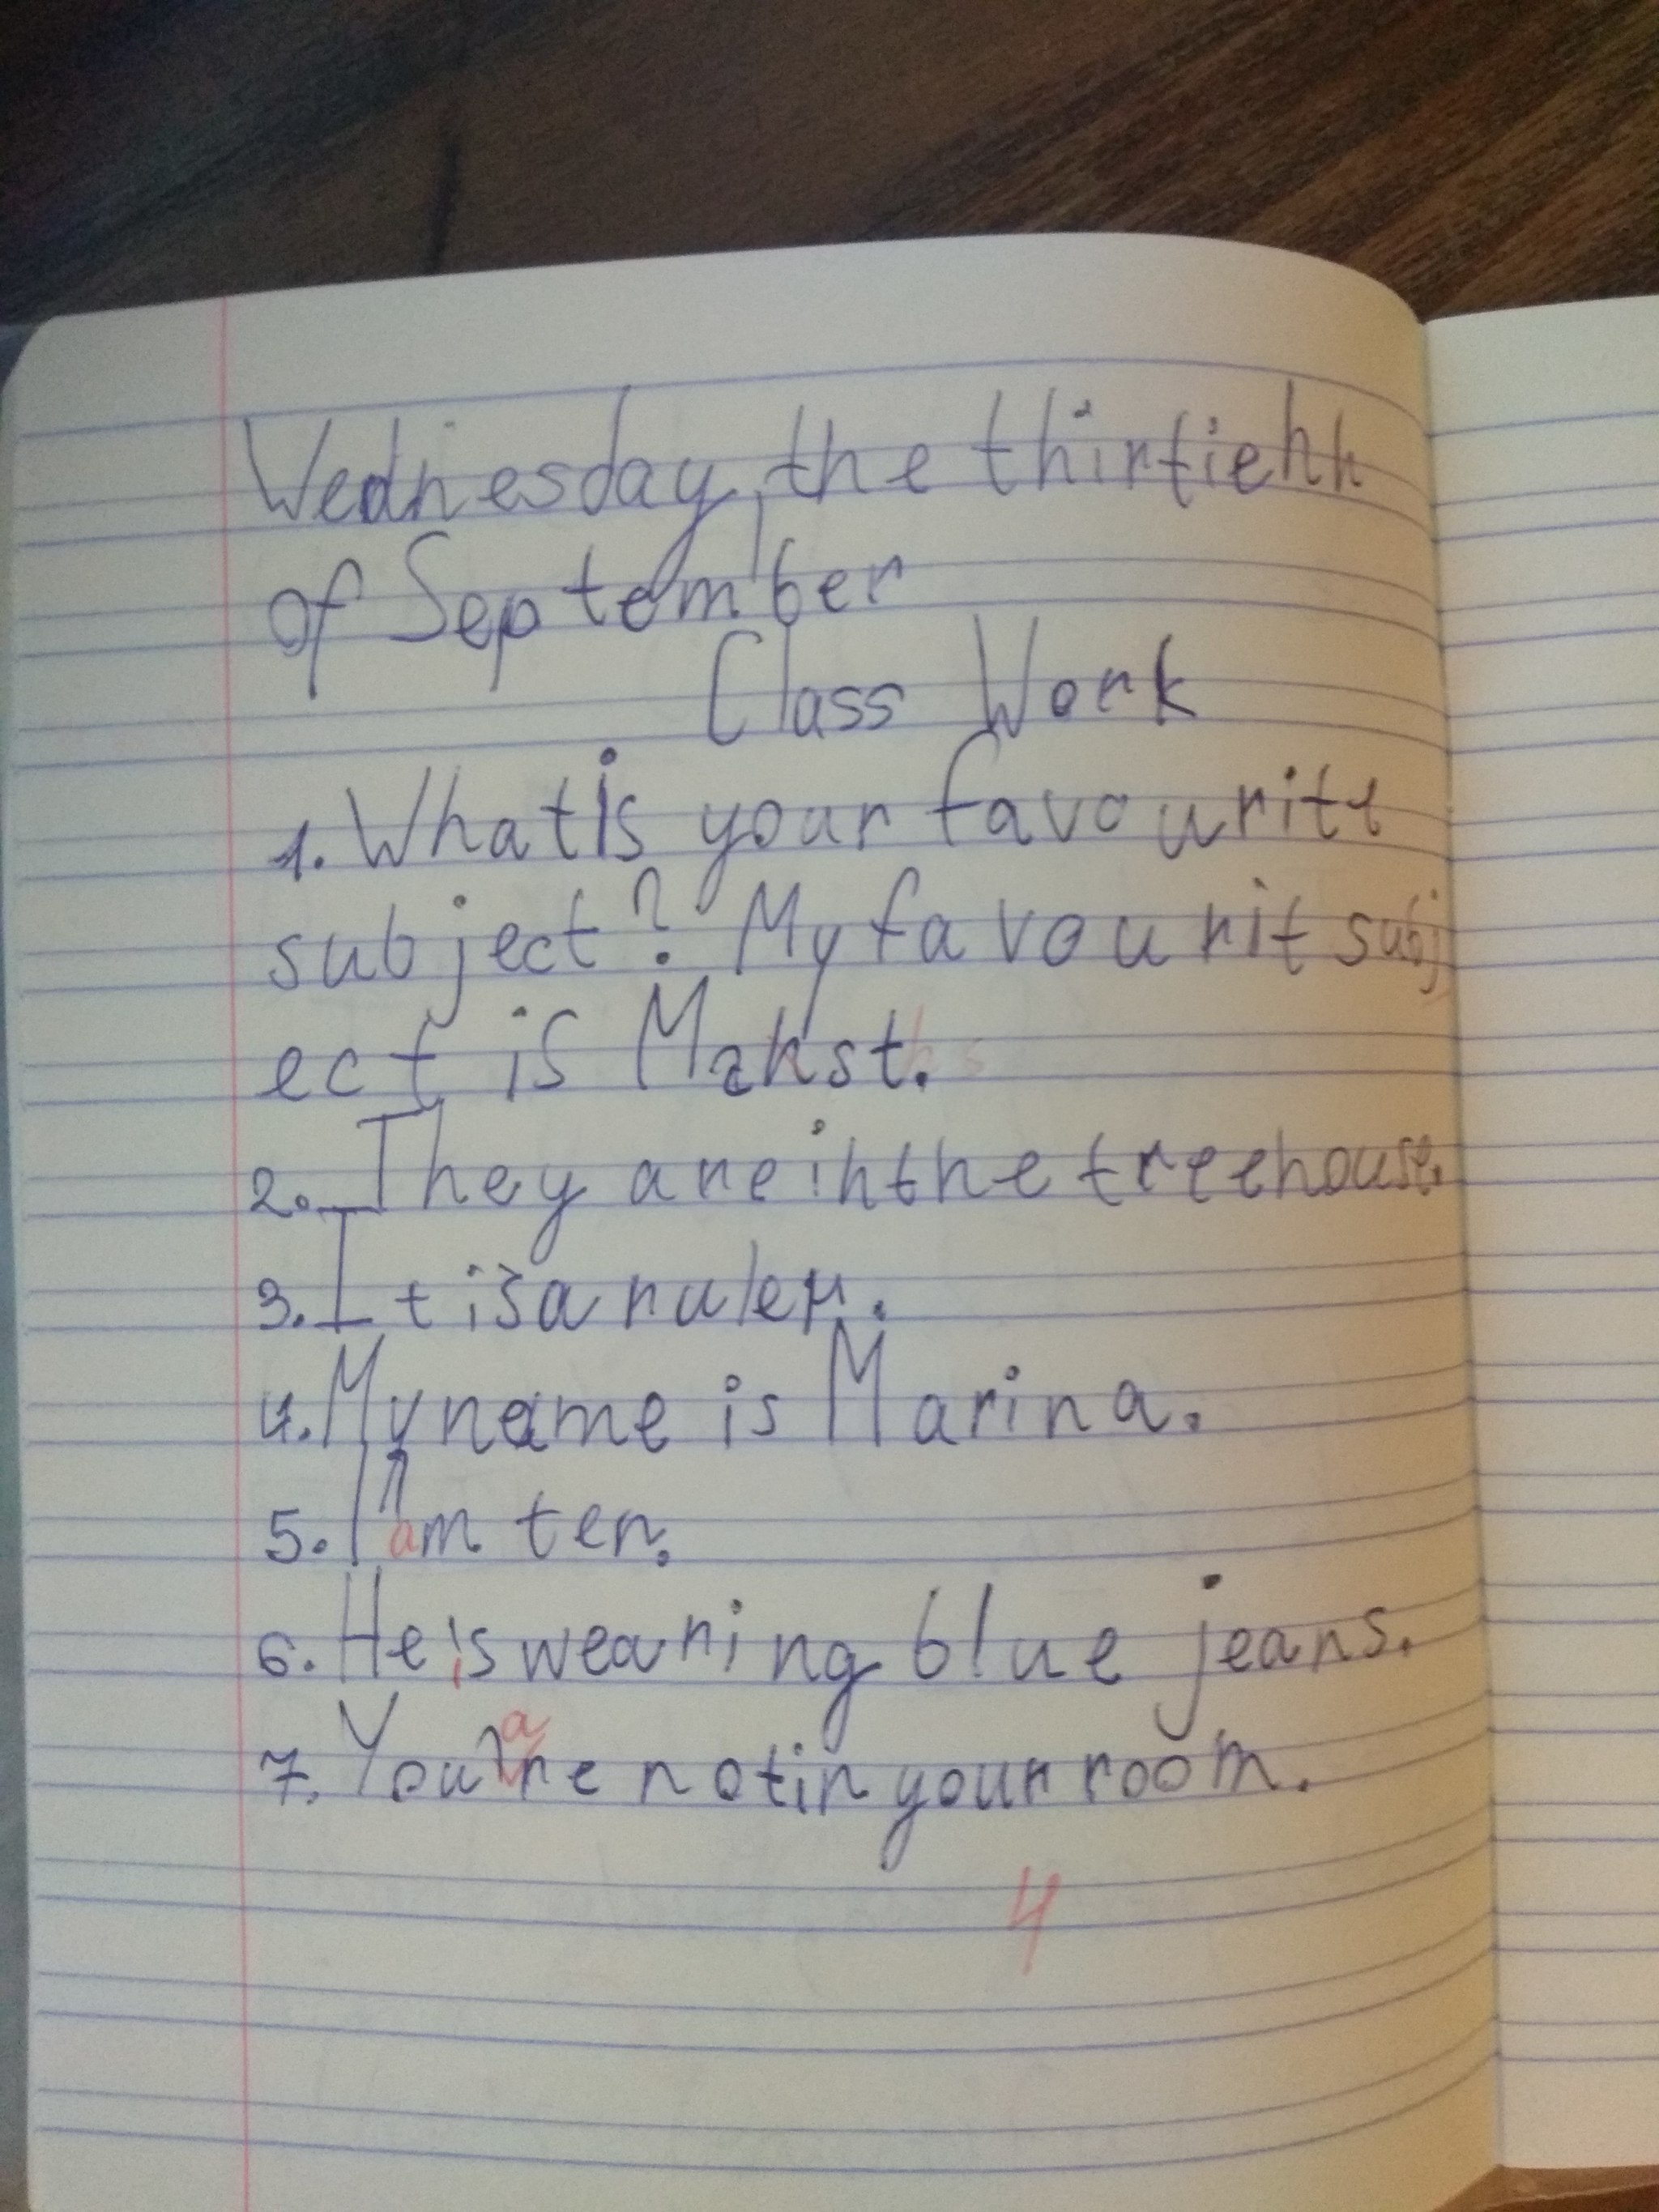 Wednesday, the thirtiehh
of September
Class Work
1. What is your favourite
subject? My favourit subj
ect is Mahst. hs
2. They are in the treehouse.
3. It is a ruler.
4. My name is Marina.
5. I am ten.
6. He is wearing blue jeans.
7. You are not in your room.
4